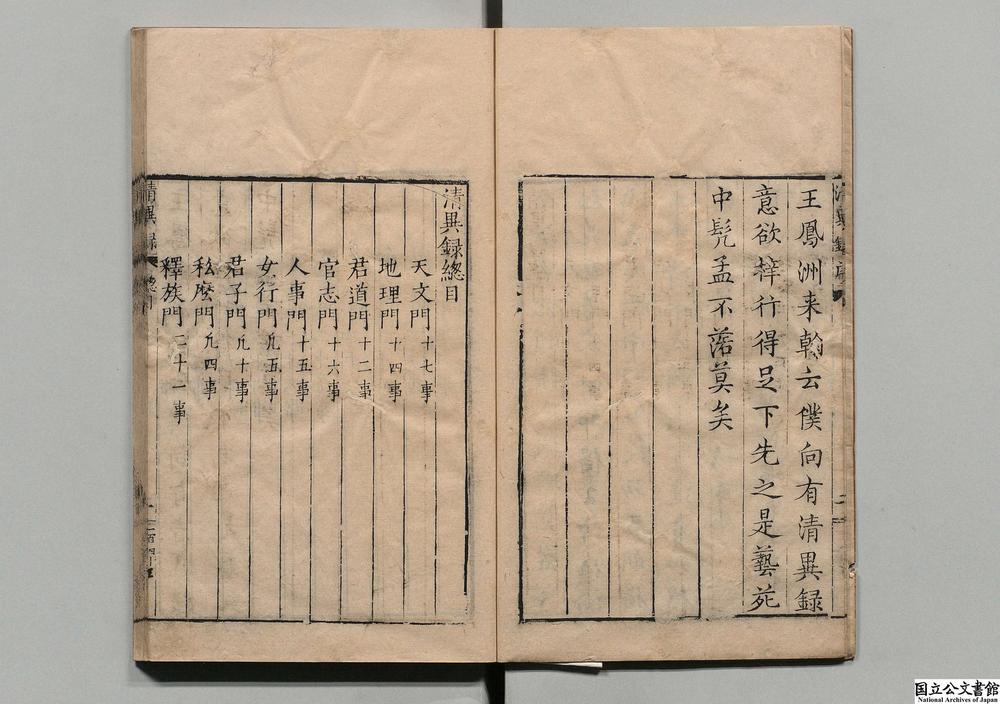 王鳳洲来翰云僕向有清異録
意欲梓行得足下先之是藝苑
中髡孟不落莫矣
清異録總目
天文門十七事
地理門十四事
君道門十二事
官志門十六事
人事門十五事
女行門凢五事
君子門凢十事
私麽門凢四事
釋族門二十一事
清異録
總目
国立公文書館
National Archives of Japan